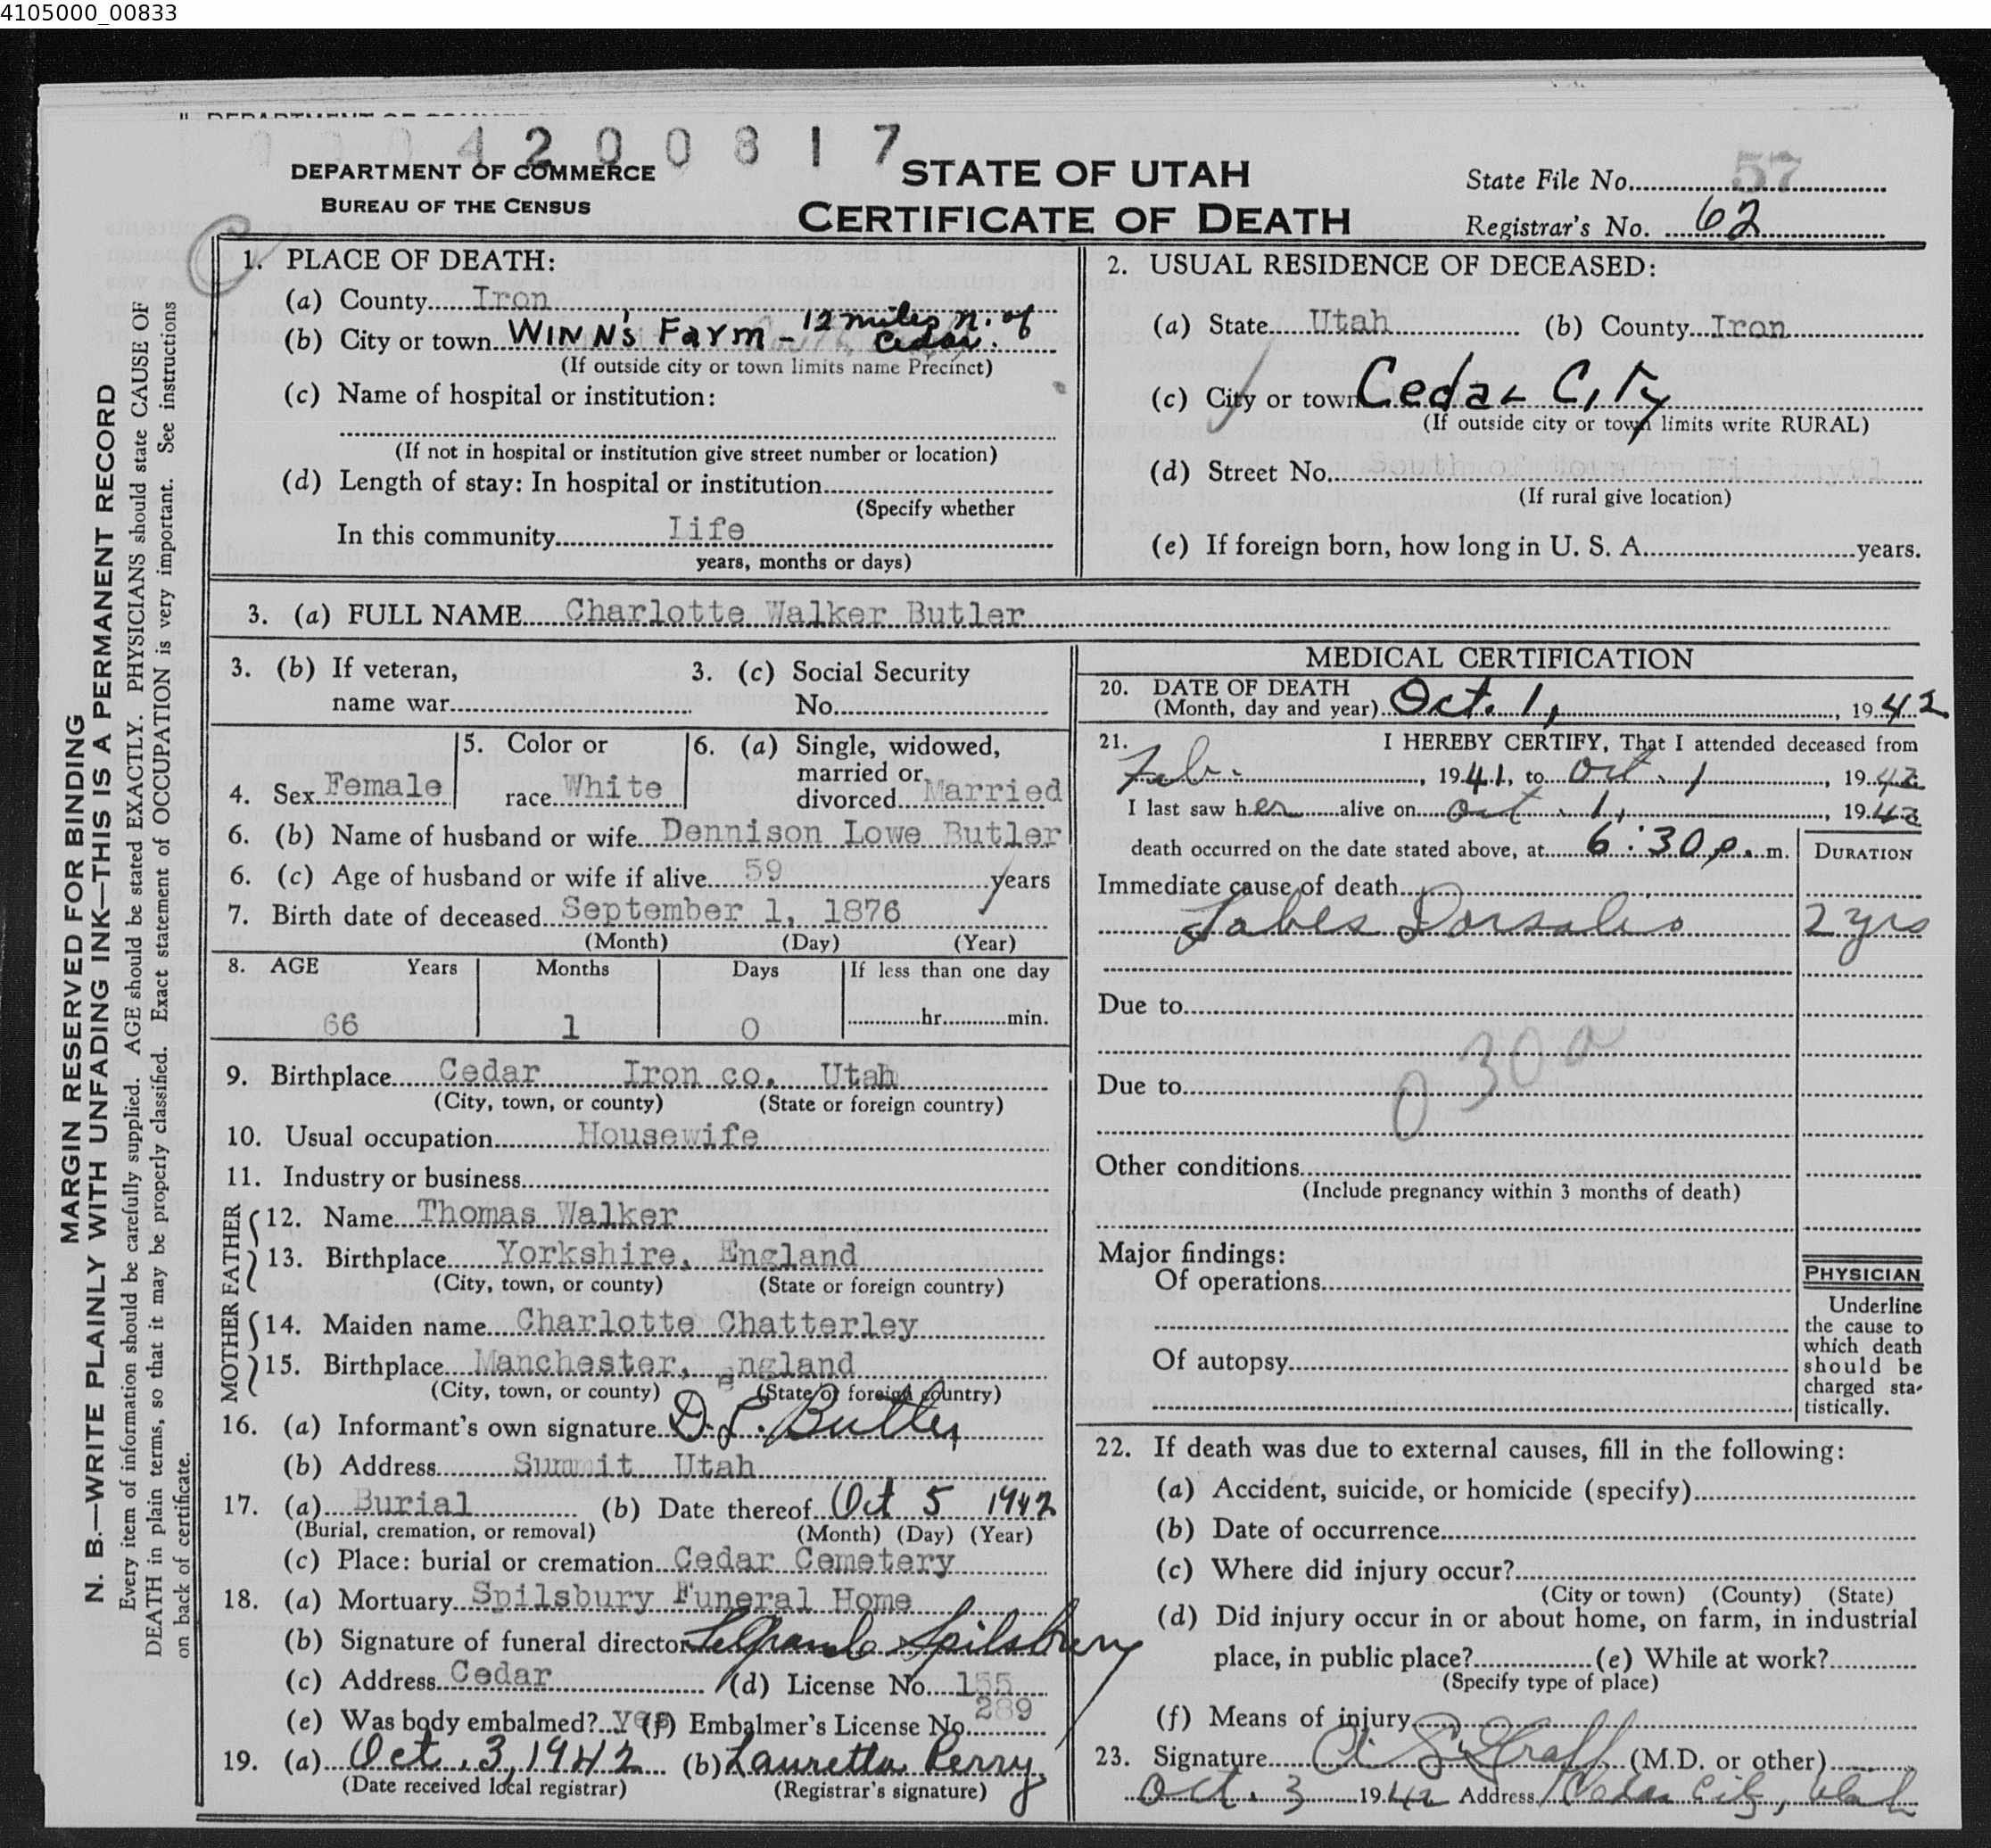 4105000_00833
4 2 0 0 8 1 7
DEPARTMENT OF COMMERCE
BUREAU OF THE CENSUS
STATE OF UTAH
CERTIFICATE OF DEATH
State File No. 57
Registrar's No. 62
MARGIN RESERVED FOR BINDING
N. B.—WRITE PLAINLY WITH UNFADING INK—THIS IS A PERMANENT RECORD
Every item of information should be carefully supplied. AGE should be stated EXACTLY. PHYSICIANS should state CAUSE OF
DEATH in plain terms, so that it may be properly classified. Exact statement of OCCUPATION is very important. See instructions
on back of certificate.
1. PLACE OF DEATH:
(a) County Iron
(b) City or town WINN'S Farm - 12 miles n. of Cedar.
(If outside city or town limits name Precinct)
(c) Name of hospital or institution:
(If not in hospital or institution give street number or location)
(d) Length of stay: In hospital or institution
(Specify whether
In this community Life
years, months or days)
2. USUAL RESIDENCE OF DECEASED:
(a) State Utah (b) County Iron
(c) City or town Cedar City
(If outside city or town limits write RURAL)
(d) Street No. South of town Highway 91
(If rural give location)
(e) If foreign born, how long in U. S. A. years.
3. (a) FULL NAME Charlotte Walker Butler
3. (b) If veteran, name war
3. (c) Social Security No.
4. Sex Female
5. Color or race White
6. (a) Single, widowed, married or divorced Married
6. (b) Name of husband or wife Dennison Lowe Butler
6. (c) Age of husband or wife if alive 59 years
7. Birth date of deceased September 1, 1876
(Month) (Day) (Year)
8. AGE Years Months Days If less than one day
66 1 0 hr. min.
9. Birthplace Cedar Iron co. Utah
(City, town, or county) (State or foreign country)
10. Usual occupation Housewife
11. Industry or business
FATHER
12. Name Thomas Walker
13. Birthplace Yorkshire, England
(City, town, or county) (State or foreign country)
MOTHER
14. Maiden name Charlotte Chatterley
15. Birthplace Manchester, England
(City, town, or county) (State or foreign country)
16. (a) Informant's own signature D. L. Butler
(b) Address Summit Utah
17. (a) Burial (b) Date thereof Oct 5 1942
(Burial, cremation, or removal) (Month) (Day) (Year)
(c) Place: burial or cremation Cedar Cemetery
18. (a) Mortuary Spilsbury Funeral Home
(b) Signature of funeral director LeGrande Spilsbury
(c) Address Cedar (d) License No. 155
(e) Was body embalmed? yes (f) Embalmer's License No. 289
19. (a) Oct. 3, 1942 (b) Lauretta Perry
(Date received local registrar) (Registrar's signature)
MEDICAL CERTIFICATION
20. DATE OF DEATH
(Month, day and year) Oct. 1, 1942
21. I HEREBY CERTIFY, That I attended deceased from
Feb. , 1941, to Oct. 1 , 1942
I last saw her alive on Oct. 1, , 1942
death occurred on the date stated above, at 6:30 p. m. DURATION
Immediate cause of death
Tabes Dorsales 2 yrs
Due to
030a
Due to
Other conditions
(Include pregnancy within 3 months of death)
Major findings:
Of operations
Of autopsy
PHYSICIAN
Underline
the cause to
which death
should be
charged sta-
tistically.
22. If death was due to external causes, fill in the following:
(a) Accident, suicide, or homicide (specify)
(b) Date of occurrence
(c) Where did injury occur?
(City or town) (County) (State)
(d) Did injury occur in or about home, on farm, in industrial
place, in public place? (e) While at work?
(Specify type of place)
(f) Means of injury
23. Signature Graff (M.D. or other)
Oct. 3 1942 Address Cedar City, Utah